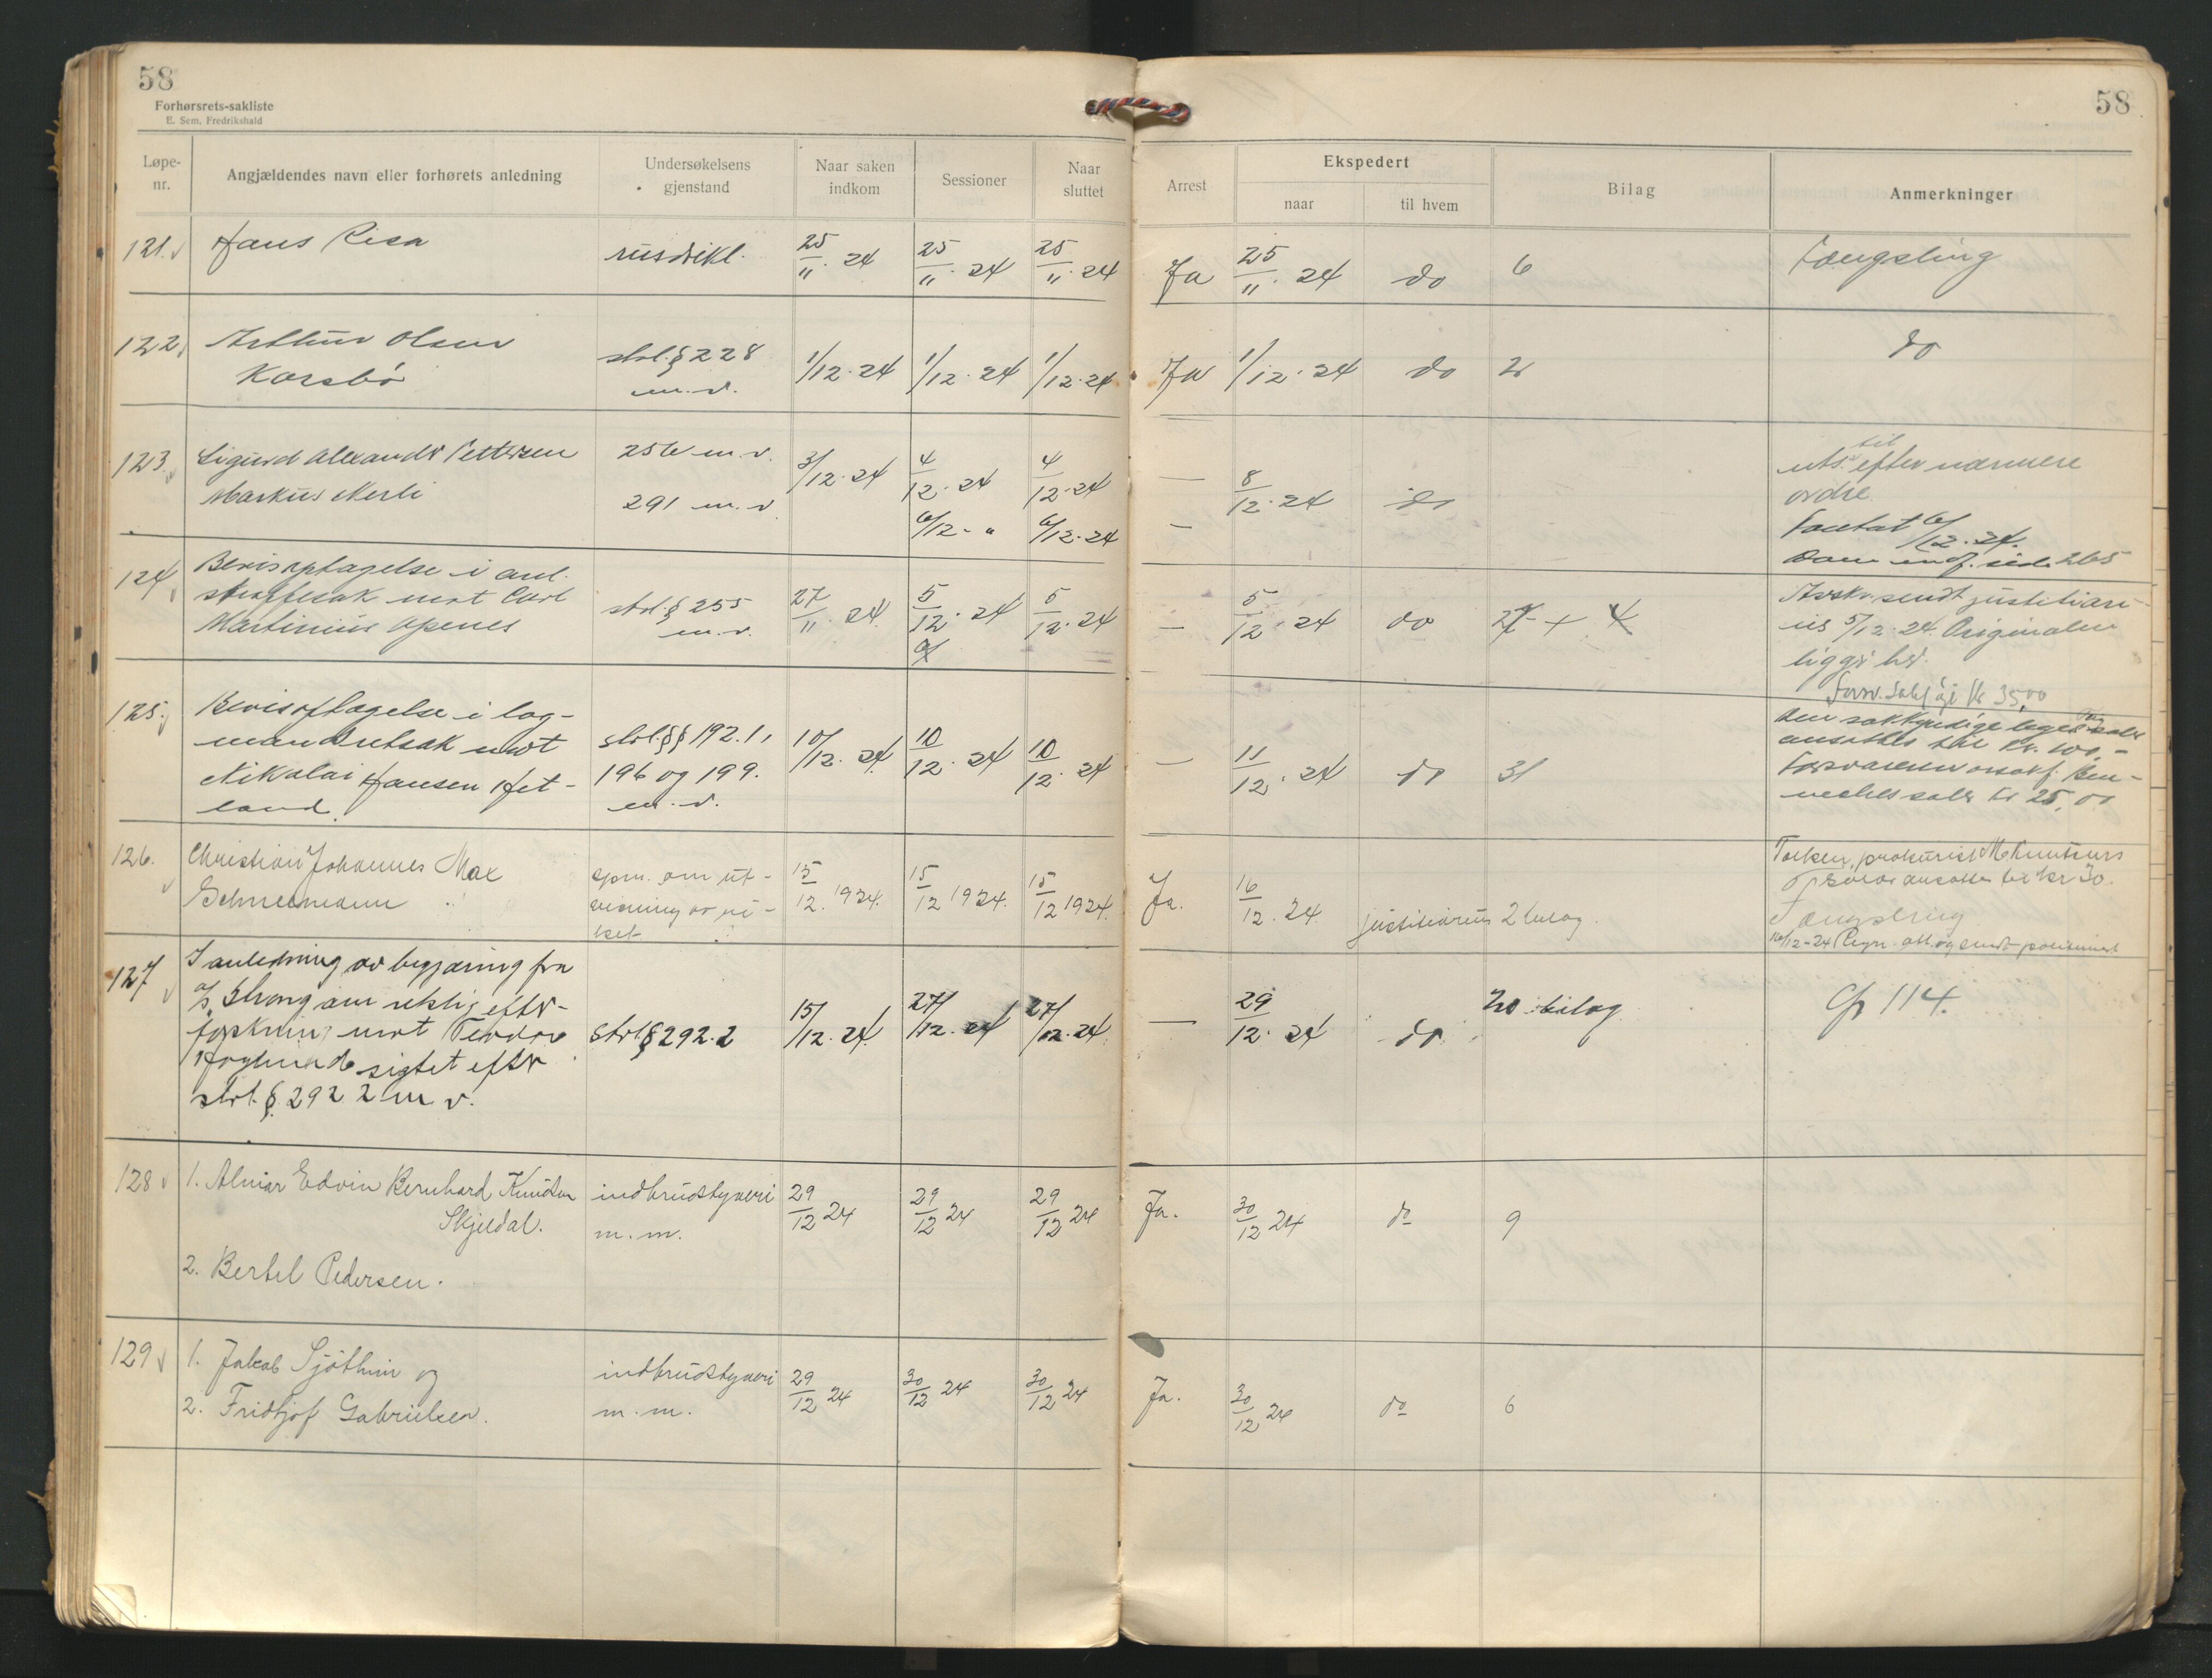 58
58
Forhørsrets-sakliste
E. Sem, Fredrikshald
Løpe-nr.
Angjældendes navn eller forhørets anledning
Undersøkelsens gjenstand
Naar saken indkom
Sessioner
Naar sluttet
Arrest
Ekspedert
naar
til hvem
Bilag
Anmerkninger
121. Hans Risa 25/11. 24 25/11. 24 25/11. 24 Ja 25/11. 24 do 6 Fængsling
122. Arthur Olsen strl. § 228 1/12. 24 1/12. 24 1/12. 24 Ja 1/12. 24 do 2 do
Korsbø m. v.
123. Sigurd Alexander Pettersen 256 m. v. 3/12. 24 4/12. 24 4/12. 24 — 8/12. 24 do uts. til efter nærmere
Markus Nerli 291 m. v. ordre.
6/12 - " 6/12. 24 — 6/12. 24.
Dom indf. side 265
124. Bevisoptagelse i anl.
straffesak mot Carl strl. § 255 27/11. 24 5/12. 24 5/12. 24 — 5/12. 24 do Avskr. sendt justitiari-
Martinius Apenes m. v. us 5/12. 24. Originalen
ligger her.
kr 35,00
125. Bevisoptagelse i lag-
mandsretsak mot strl. §§ 192.1, 10/12. 24 10/12. 24 10/12. 24 — 11/12. 24 do 31
Nikolai Hansen Het- 196 og 199.
land. m. v.
Den sakkyndige læges salær
ansattes til kr. 100,-
salær kr 25,00
126. Christian Johannes Max spm. om ut- 15/12. 1924. 15/12 1924. 15/12 1924. Ja. 16/12. 24 justitiarius 2 bilag.
Schneemann visning av ri-
ket
Tolken, prokurist M. Knutsens
salær ansattes til kr 30.
Fængsling
16/12-24
127 I anledning av begjæring fra
A/S Strong om retslig efter-
forskning mot Teodor strl § 292.2 15/12. 24. 27/12. 24 27/12. 24. — 29/12. 24 do 20 bilag 114.
Høglund sigtet efter
strl. § 292 2 m v.
128 1. Almar Edvin Bernhard Knudsen indbrudstyveri 29/12 24 29/12 24 29/12 24 Ja. 30/12 24 do 9
Skjeldal. m. m.
2. Bertel Pedersen.
129 1. Jakob Sjøthun og indbrudstyveri 29/12 24 30/12 24 30/12 24 Ja. 30/12 24 do 6
2. Fridtjof Gabrielsen. m. m.